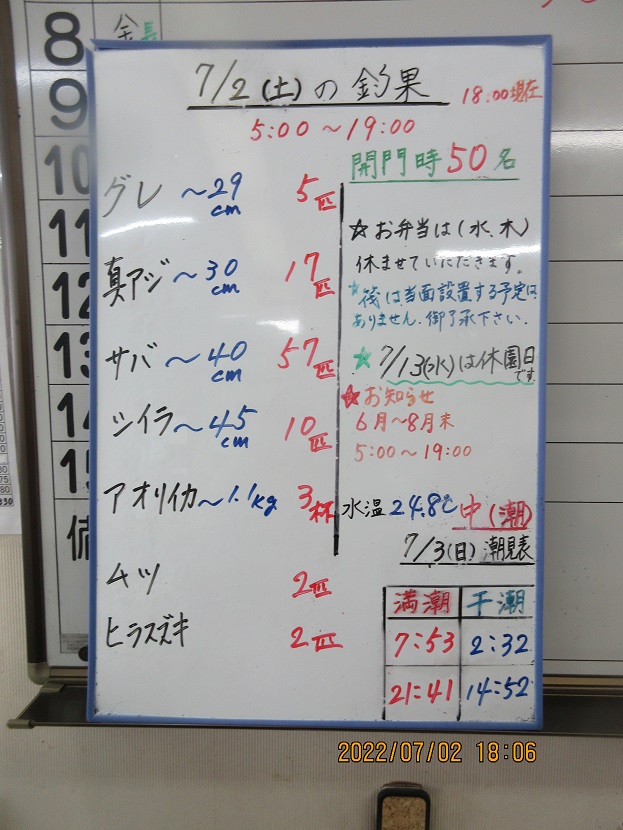 8 金 長
9
10
11
12
13
14
15
7/2(土)の釣果
18:00現在
5:00～19:00
開門時50名
グレ ～29cm 5匹
真アジ ～30cm 17匹
サバ ～40cm 57匹
シイラ ～45cm 10匹
アオリイカ ～1.1kg 3杯
ムツ 2匹
ヒラスズキ 2匹
☆お弁当は(水、木)
休ませていただきます。
☆筏は当面設置する予定は
ありません。御了承下さい.
☆7/13(水)は休園日です
☆お知らせ
6月～8月末
5:00～19:00
水温24.8℃ 中(潮)
7/3(日)潮見表
満潮 干潮
7:53 2:32
21:41 14:52
2022/07/02 18:06